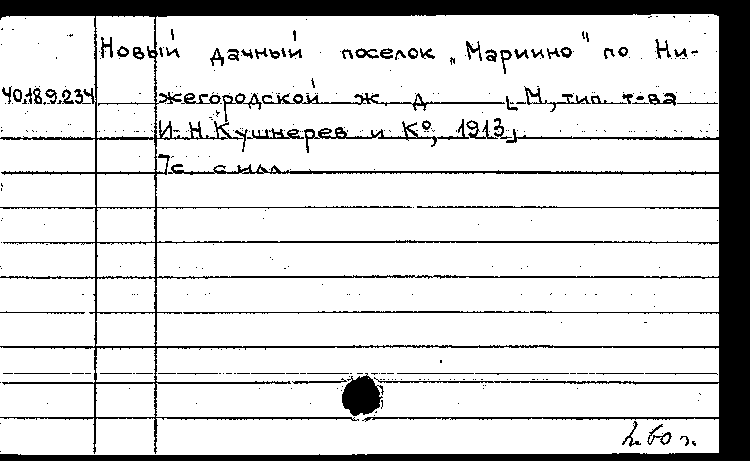 Новый дачный поселок „Мариино" по Ни-
40.18.9.234 жегородской ж. д [М., тип. т-ва
И. Н. Кушнерев и К°, 1913].
7с. с илл.